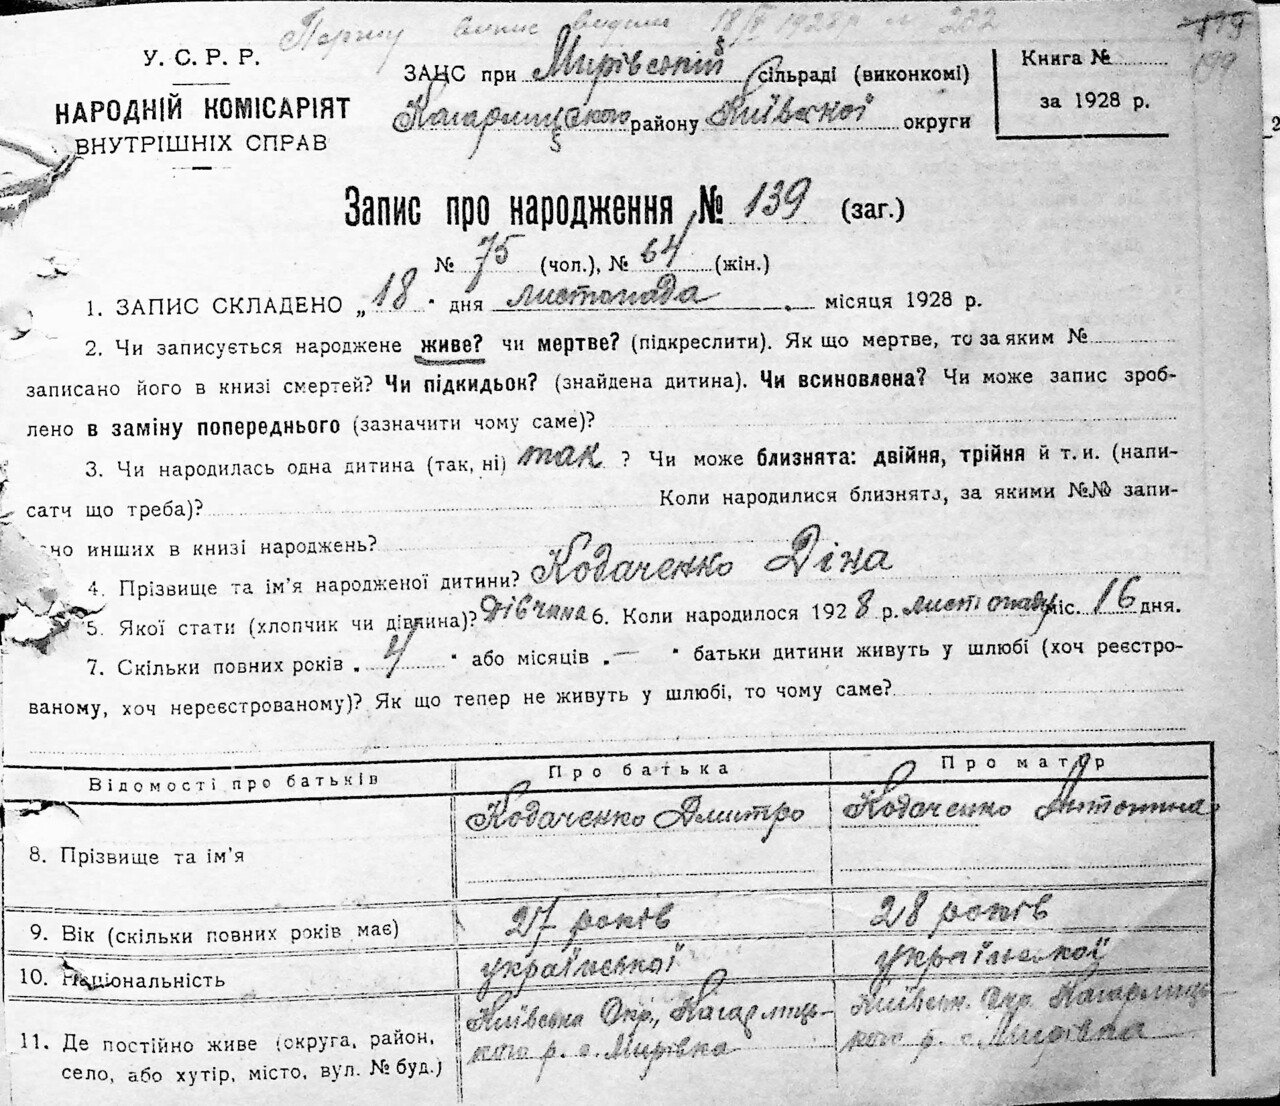 Першу випис видана 18/ 1928 р № 282
179
199
У. С. Р. Р.
НАРОДНІЙ КОМІСАРІЯТ
ВНУТРІШНІХ СПРАВ
ЗАНС при Мирівській сільраді (виконкомі)
Кагарлицького району Київської округи
Книга №
за 1928 р.
2
Запис про народження № 139 (заг.)
№ 75 (чол.), № 64 (жін.)
1. ЗАПИС СКЛАДЕНО „18" дня листопада місяця 1928 р.
2. Чи записується народжене живе? чи мертве? (підкреслити). Як що мертве, то за яким №
записано його в книзі смертей? Чи підкидьок? (знайдена дитина). Чи всиновлена? Чи може запис зроб-
лено в заміну попереднього (зазначити чому саме)?
3. Чи народилась одна дитина (так, ні) так ? Чи може близнята: двійня, трійня й т. и. (напи-
сати що треба)? Коли народилися близнята, за якими №№ запи-
но инших в книзі народжень?
4. Прізвище та ім'я народженої дитини? Кодаченко Діна
5. Якої статі (хлопчик чи дівчина)? Дівчина 6. Коли народилося 1928 р. листопаду міс. 16 дня.
7. Скільки повних років „4" або місяців „—" батьки дитини живуть у шлюбі (хоч реєстро-
ваному, хоч нереєстрованому)? Як що тепер не живуть у шлюбі, то чому саме?
Відомості про батьків Про батька Про матір
8. Прізвище та ім'я Кодаченко Дмитро Кодаченко Антонина
9. Вік (скільки повних років має) 27 років 28 років
10. Національність української української
11. Де постійно живе (округа, район, Київська Окр., Кагарлиць- Київськ. Окр. Кагарлиць-
село, або хутір, місто, вул. № буд.) кого р. с. Мирівка кого р. с. Мирівка